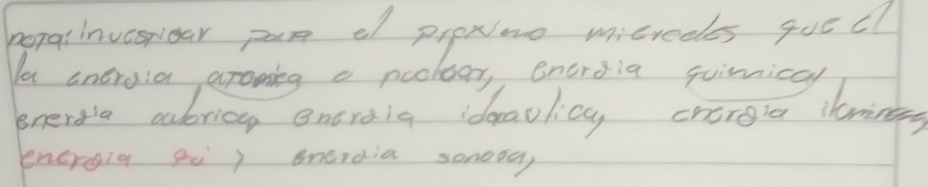 nota: Investigar para el proximo miercoles que el
la energia atomica o nuclear, energia quimica,
energia eolica, energia idraulica, energia iluminosa,
energia qui y energia sonora,